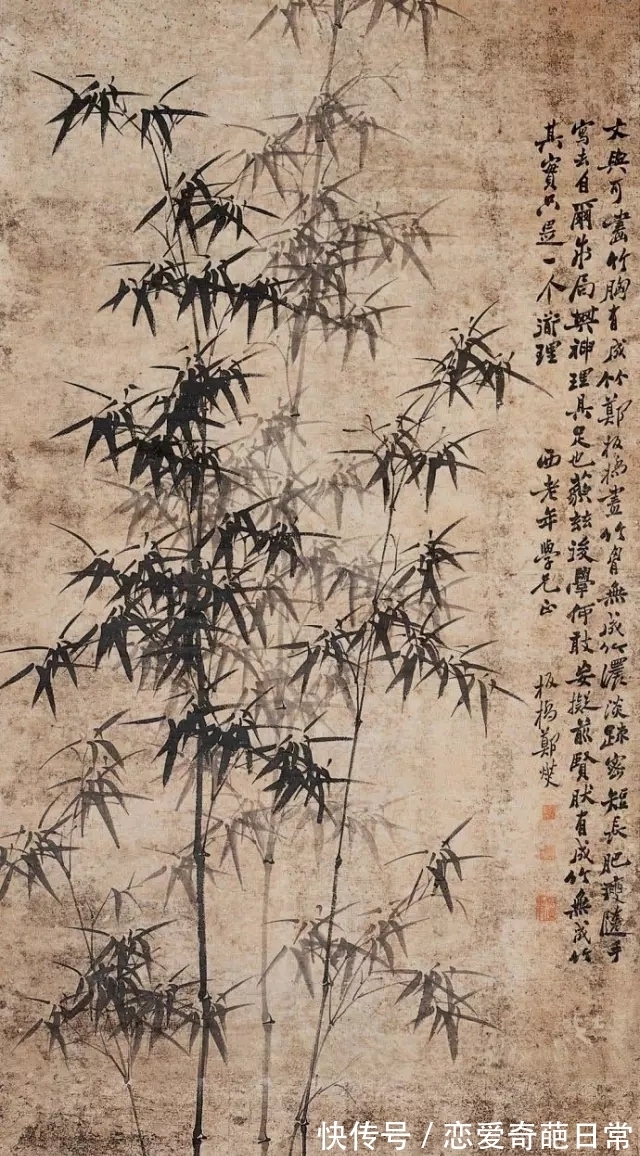 文與可畫竹胸有成竹鄭板橋畫竹胸無成竹濃淡疎密短長肥瘦隨手
寫去自爾成局其神理具足也藐茲後學何敢妄擬前賢肰有成竹無成竹
其實只是一个道理
西老年學兄正
板橋鄭燮
快传号 / 恋爱奇葩日常